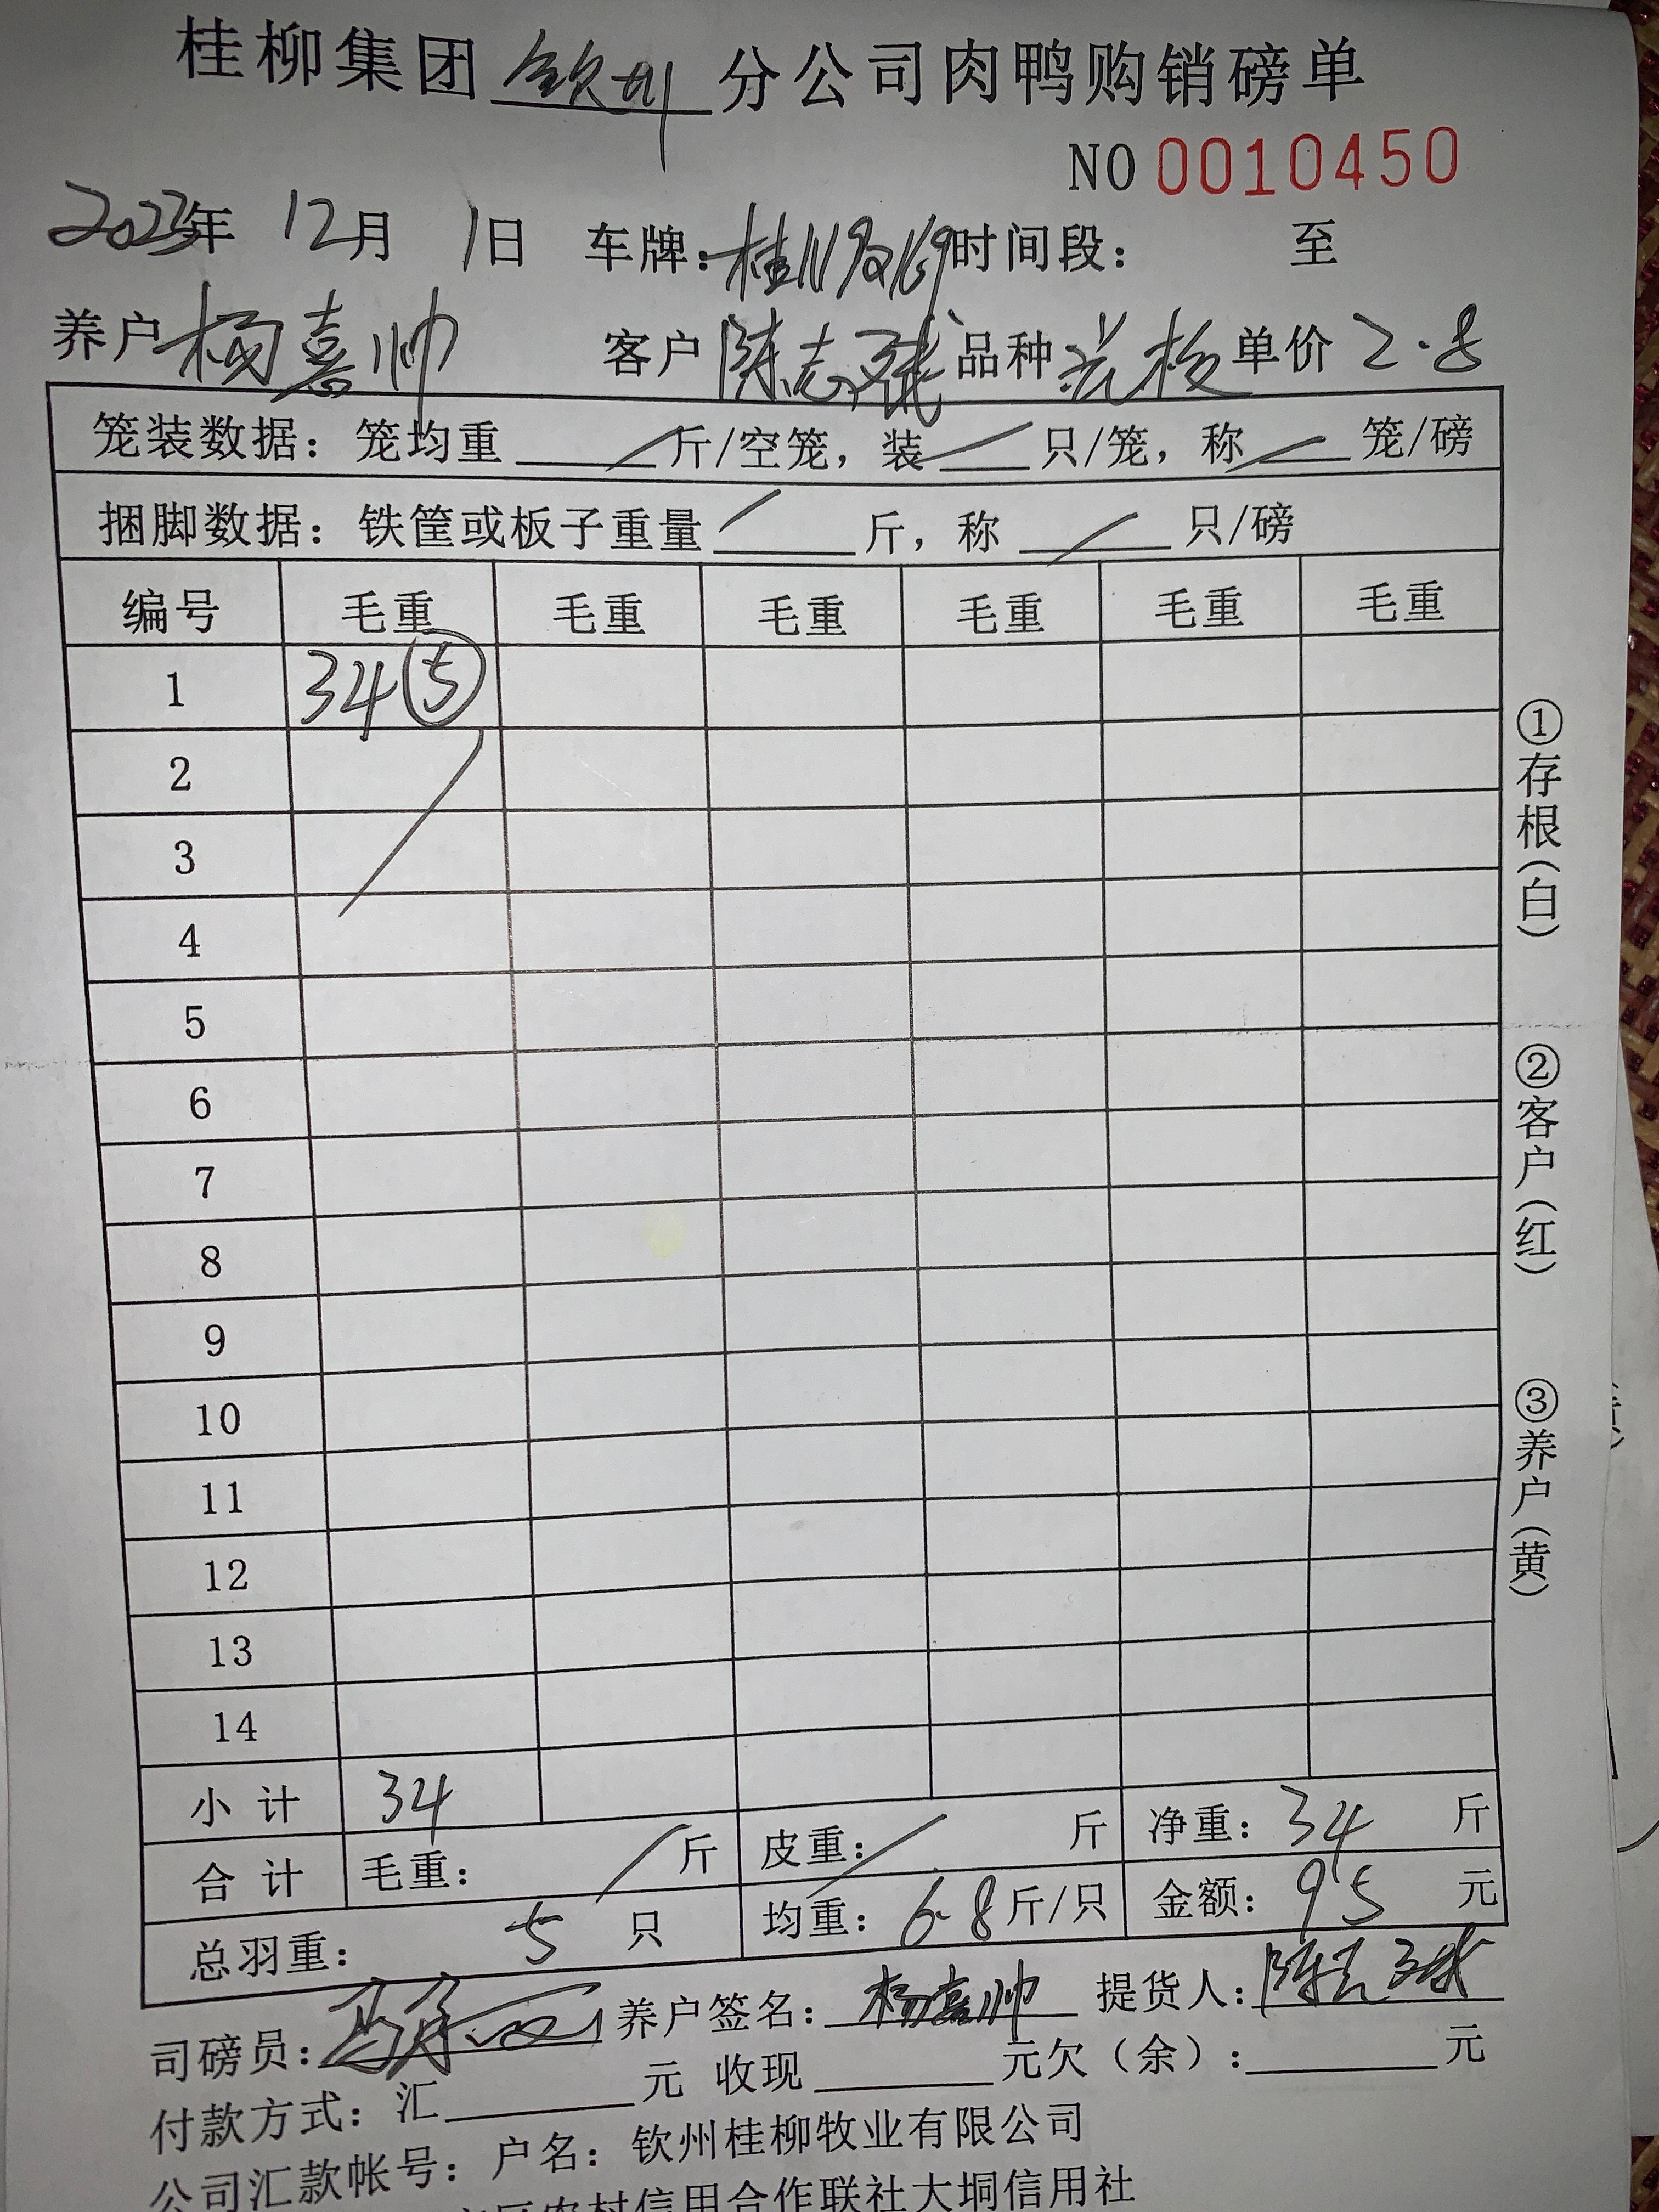 桂柳集团 钦州 分公司肉鸭购销磅单
NO 0010450
2023年 12月 1日 车牌: 时间段: 至
养户 杨嘉帅 客户 陈志球 品种 单价 2.8
笼装数据: 笼均重 斤/空笼, 装 只/笼, 称 笼/磅
捆脚数据: 铁筐或板子重量 斤, 称 只/磅
编号 毛重 毛重 毛重 毛重 毛重 毛重
1 34 ⑤
2
3
4
5
6
7
8
9
10
11
12
13
14
小计 34
合计 毛重: 斤 皮重: 斤 净重: 34 斤
总羽重: 5 只 均重: 6.8 斤/只 金额: 95 元
司磅员: 养户签名: 杨嘉帅 提货人: 陈志球
付款方式: 汇 元 收现 元欠(余): 元
公司汇款帐号: 户名: 钦州桂柳牧业有限公司
农村信用合作联社大垌信用社
①存根(白)
②客户(红)
③养户(黄)